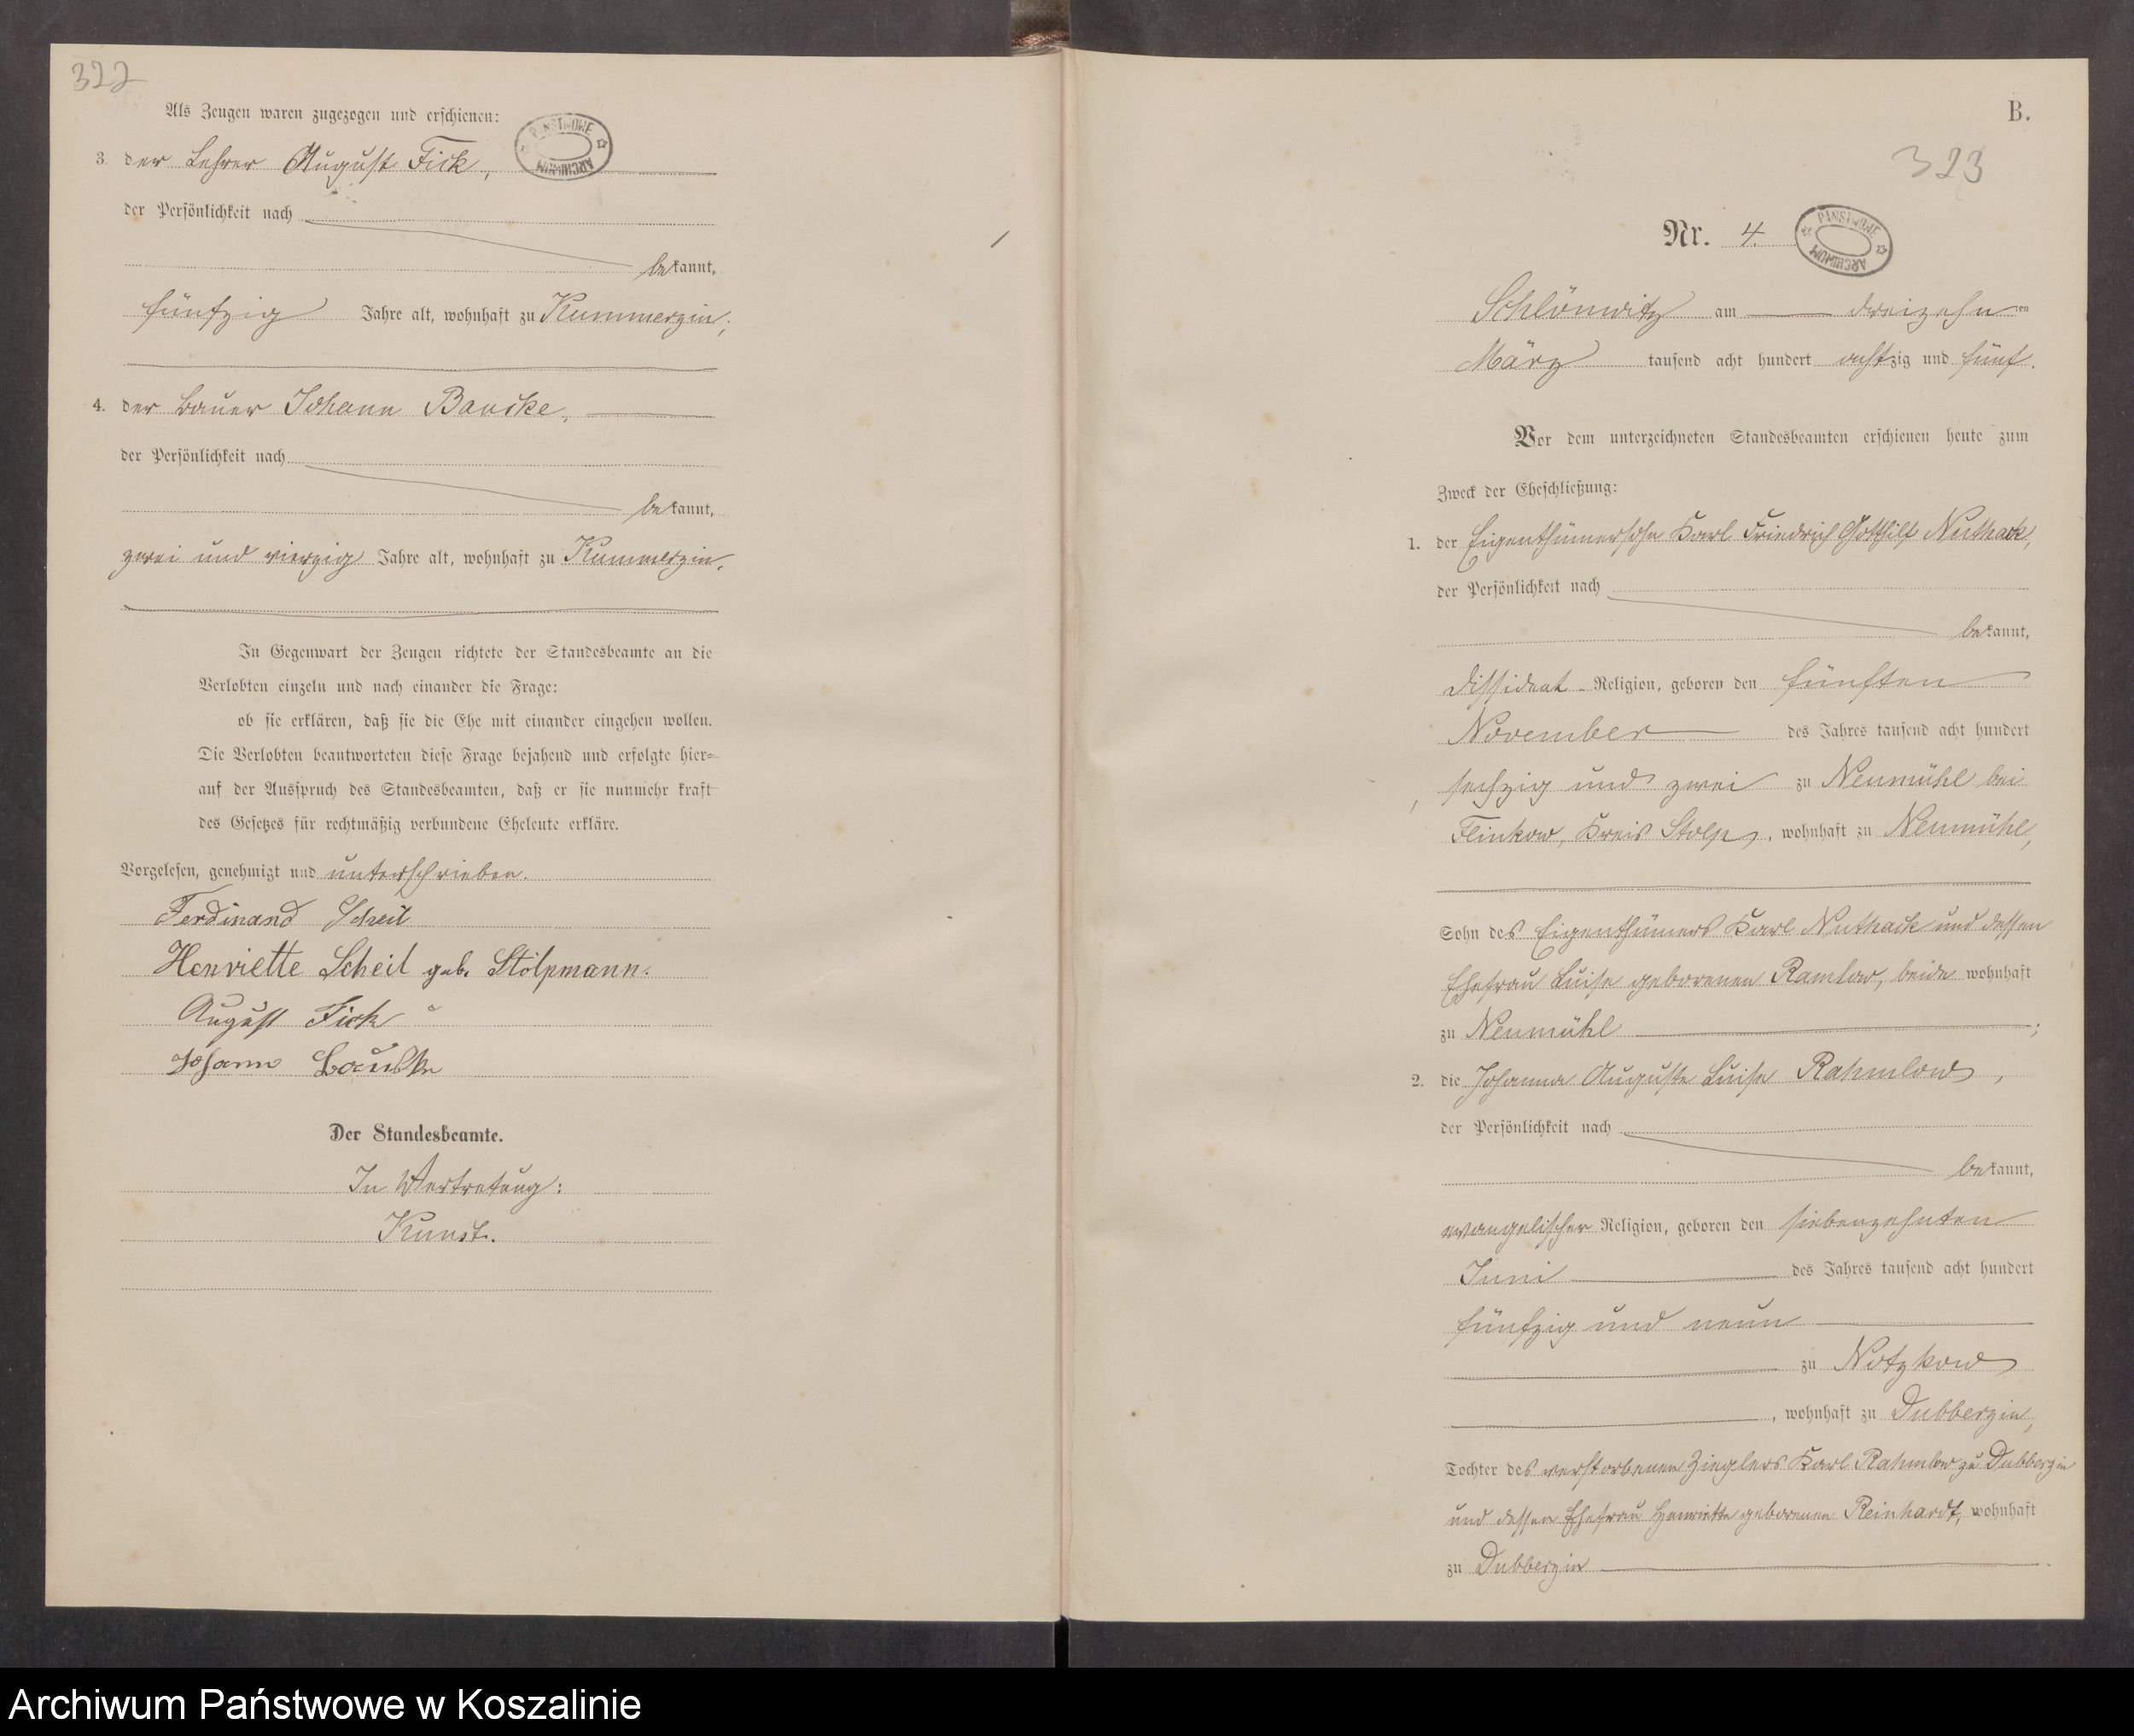 322
Als Zeugen waren zugezogen und erschienen:
PAŃSTWOWE ARCHIWUM
3. der Lehrer August Fick,
der Persönlichkeit nach
bekannt,
fünfzig Jahre alt, wohnhaft zu Kummerzin;
4. der Bauer Johann Bauske,
der Persönlichkeit nach
bekannt,
zwei und vierzig Jahre alt, wohnhaft zu Kummerzin.
In Gegenwart der Zeugen richtete der Standesbeamte an die
Verlobten einzeln und nach einander die Frage:
ob sie erklären, daß sie die Ehe mit einander eingehen wollen.
Die Verlobten beantworteten diese Frage bejahend und erfolgte hier=
auf der Ausspruch des Standesbeamten, daß er sie nunmehr kraft
des Gesetzes für rechtmäßig verbundene Eheleute erkläre.
Vorgelesen, genehmigt und unterschrieben.
Ferdinand Scheil
Henriette Scheil geb. Stölpmann.
August Fick
Johann
Der Standesbeamte.
In Vertretung:
Kunst.
B.
323
Nr. 4.
PAŃSTWOWE ARCHIWUM
Schlönwitz am dreizehnten
März tausend acht hundert achtzig und fünf.
Vor dem unterzeichneten Standesbeamten erschienen heute zum
Zweck der Eheschließung:
1. der Eigenthümersohn Karl Friedrich Gotthilf Nuthack,
der Persönlichkeit nach
bekannt,
Dissident - Religion, geboren den fünften
November des Jahres tausend acht hundert
sechzig und zwei zu Neumühl bei
Flinkow, Kreis Stolp, wohnhaft zu Neumühl,
Sohn des Eigenthümers Karl Nuthack und dessen
Ehefrau Luise geborenen Ramlow, beide wohnhaft
zu Neumühl ;
2. die Johanna Auguste Luise Rahmlow,
der Persönlichkeit nach
bekannt,
evangelischer Religion, geboren den siebenzehnten
Juni des Jahres tausend acht hundert
fünfzig und neun
zu Notzkow
, wohnhaft zu Dubberzin,
Tochter des verstorbenen Zieglers Karl Rahmlow zu Dubberzin
und dessen Ehefrau Henriette geborenen Reinhardt, wohnhaft
zu Dubberzin .
Archiwum Państwowe w Koszalinie